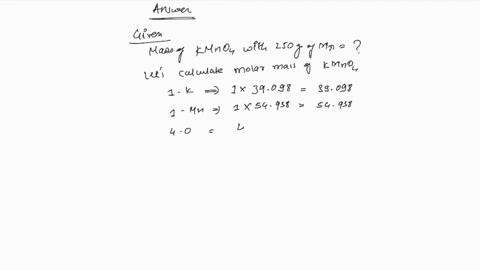 Answer
Given
Mass of KMnO4 with 250 g of Mn = ?
Let's calculate molar mass of KMnO4
1-K ⟹ 1 × 39.098 = 39.098
1-Mn ⟹ 1 × 54.938 = 54.938
4-O = 4